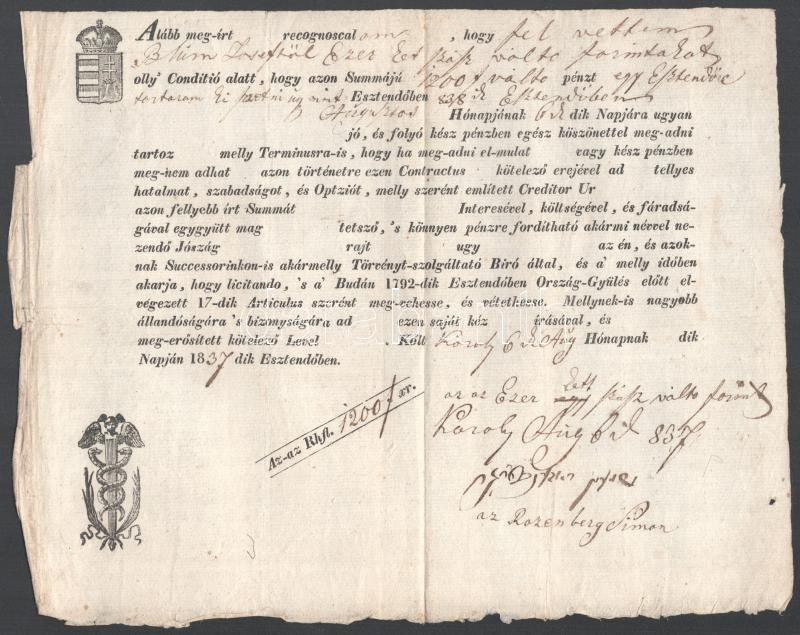 Alább meg-írt recognoscal om , hogy fel vettem
Blúm Joseftöl Ezer Ket száz válto forintakat
olly Conditió alatt, hogy azon Summájú 1200 f váltó pénzt egy Esztendőre
tartozom ki Esztendőben 838 ik Esztendőben
Augustus Hónapjának 6 ik dik Napjára ugyan
jó, és folyó kész pénzben egész köszönettel meg-adni
tartoz melly Terminusra-is, hogy ha meg-adni el-mulat vagy kész pénzben
meg-nem adhat azon történetre ezen Contractus kötelező erejével ad tellyes
hatalmat, szabadságot, és Optziót, melly szerént említett Creditor Ur
azon fellyebb írt Summát Interesével, költségével, és fáradsá-
gával egygyütt mag tetsző, 's könnyen pénzre fordítható akármi névvel ne-
zendő Jószág rajt ugy az én, és azok-
nak Successorinkon-is akármelly Törvényt-szolgáltató Biró által, és a' melly időben
akarja, hogy licitando, 's a' Budán 1792-dik Esztendőben Ország-Gyülés előtt el-
végezett 17-dik Articulus szerént meg-vehesse, és vétethesse. Mellynek-is nagyobb
állandóságára 's bizonyságára ad ezen saját kéz írásával, és
meg-erősített kötelező Level . Költ Károly 6 ik Aug Hónapnak dik
Napján 1837 dik Esztendőben.
az az Ezer Kett száz válto forint
Az-az Rhfl. 1200 f xr.
Károly Aug 6 ik 837
az Rozenberg Simon